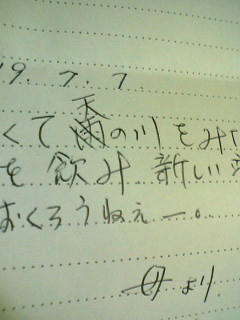 19. 7. 7.
くて天の川をみ
を飲み 新しい
おくろうねぇー。
母より